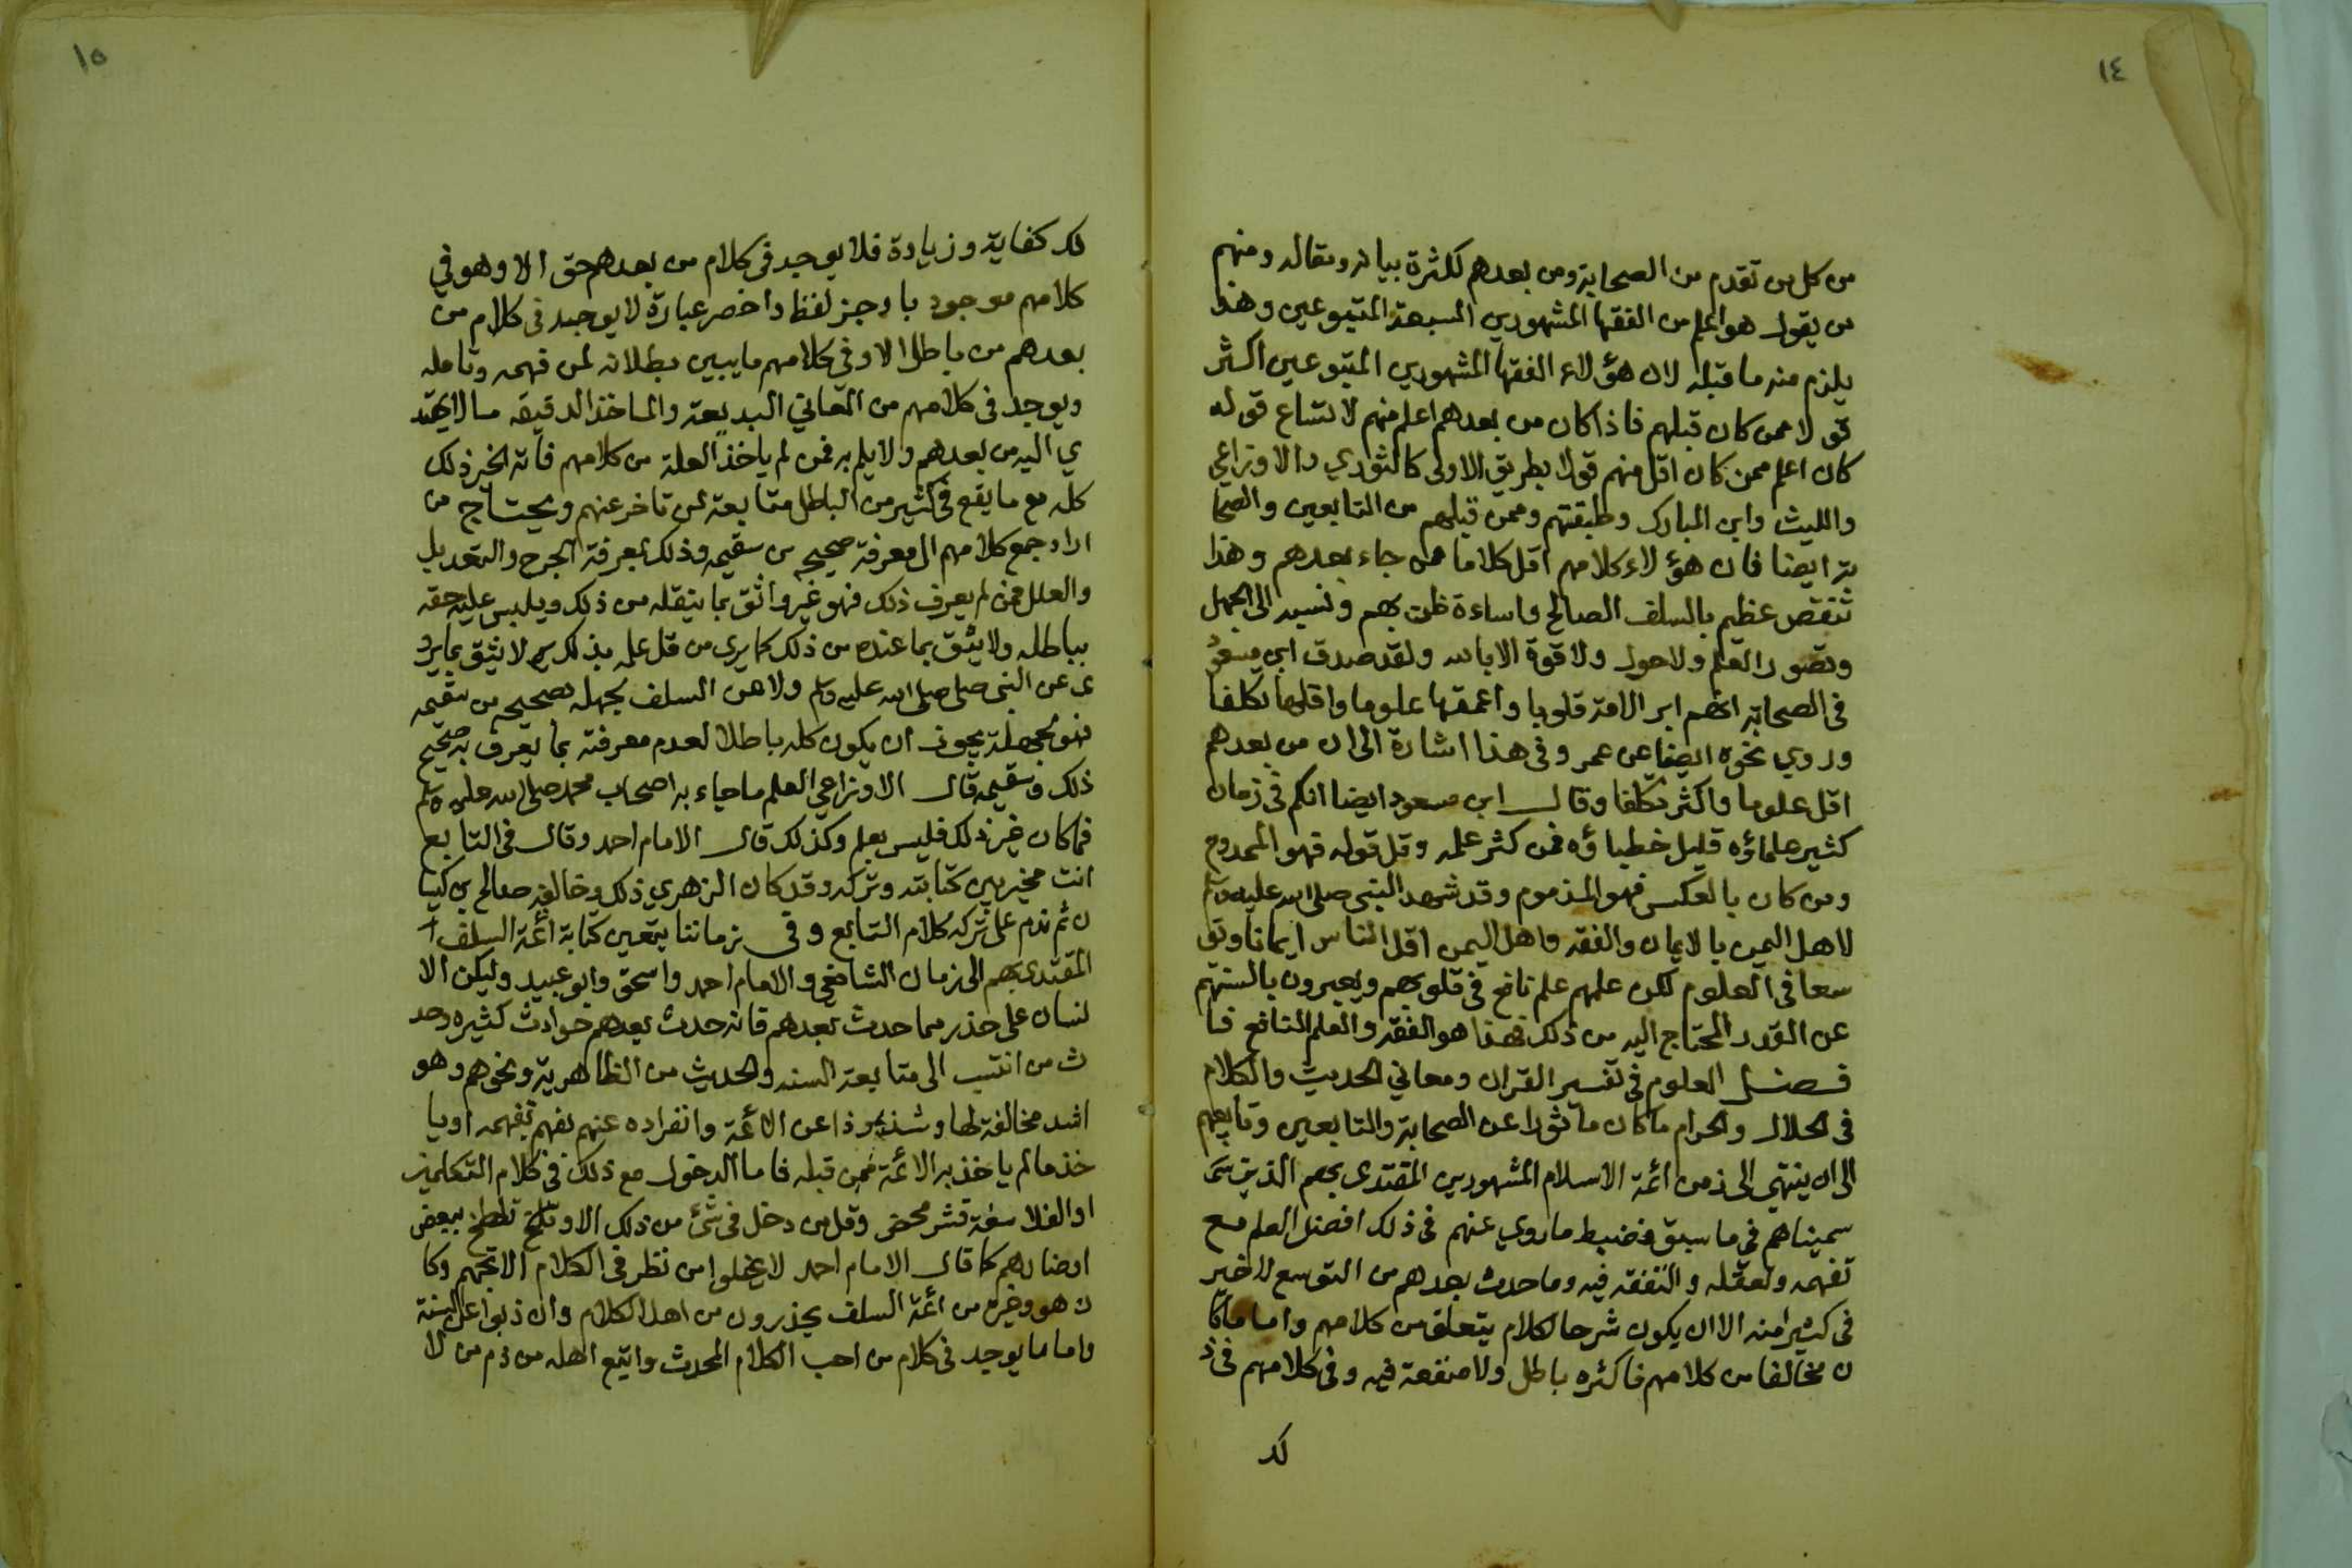 ١٤
من كل من تقدم من الصحابة ومن بعدهم لكثرة بيانه ومقاله ومنهم
من يقول هو اعلم من الفقها المشهورين السبعة المتبوعين وهذا
يلزم منه ما قبله لان هؤلاء الفقها المشهورين المتبوعين اكثر
قولا ممن كان قبلهم فاذا كان من بعدهم اعلم منهم لاتساع قوله
كان اعلم ممن كان اقل منهم قولا بطريق الاولى كالثوري والاوزاعي
والليث وابن المبارك وطبقتهم وممن قبلهم من التابعين والصحا
بة ايضا فان هؤلاء كلامهم اقل كلاما ممن جاء بعدهم وهذا
تنقص عظيم بالسلف الصالح واساءة ظن بهم ونسبه الى الجهل
وقصور العلم ولا حول ولا قوة الا بالله ولقد صدق ابن مسعود
في الصحابة انهم ابر الامة قلوبا واعمقها علوما واقلها تكلفا
وروي نحوه ايضا عن عمر وفي هذا اشارة الى ان من بعدهم
اقل علوما واكثر تكلفا وقال ابن مسعود ايضا انكم في زمان
كثير علماؤه قليل خطباؤه فمن كثر علمه وقل قوله فهو الممدوح
ومن كان بالعكس فهو المذموم وقد شهد النبي صلى الله عليه وسلم
لاهل اليمن بالايمان والفقه واهل اليمن اقل الناس ايمانا وتو
سعا في العلوم لكن علمهم علم نافع في قلوبهم ويعبرون بالسنتهم
عن القدر المحتاج اليه من ذلك فهذا هو الفقه والعلم النافع فا
فضل العلوم في تفسير القران ومعاني الحديث والكلام
في الحلال والحرام ما كان ماثورا عن الصحابة والتابعين وتابعيهم
الى ان ينتهي الى زمن ائمة الاسلام المشهورين المقتدى بهم الذين
سميناهم في ما سبق فضبط ما روي عنهم في ذلك افضل العلم مع
تفهمه وتعقله والتفقه فيه وما حدث بعدهم من التوسع لا خير
في كثير امنه الا ان يكون شرحا لكلام يتعلق من كلامهم واما ما كا
ن مخالفا من كلامهم فاكثره باطل ولا منفعة فيه وفي كلامهم في ذ
لك
١٥
لك كفاية وزيادة فلا يوجد في كلام من بعدهم حق الا وهو في
كلامهم موجود باوجز لفظ واخصر عبارة لا يوجد في كلام من
بعدهم من باطل الا وفي كلامهم ما يبين بطلانه لمن فهمه وتامله
ويوجد في كلامهم من المعاني البديعة والماخذ الدقيقه ما لا يهتد
ي اليه من بعدهم ولا يلم به فمن لم ياخذ العلم من كلامهم فاته الخير ذلك
كله مع ما يقع في كثير من الباطل متابعة لمن تاخر عنهم ويحتاج من
اراد جمع كلامهم الى معرفة صحيحه من سقيمه وذلك بمعرفة الجرح والتعديل
والعلل فمن لم يعرف ذلك فهو غير واثق بما ينقله من ذلك ويلبس عليه حقه
بباطله ولا يثق بما عنده من ذلك كما يرى من قل علمه بذلك لا يثق بما يرو
ى عن النبي صلى صلى الله عليه وسلم ولا عن السلف لجهله بصحيحه من سقيمه
فهو بجهله يجوز ان يكون كله باطلا لعدم معرفته بما يعرف به صحيح
ذلك وسقيمه قال الاوزاعي العلم ما جاء به اصحاب محمد صلى الله عليه وسلم
فما كان غير ذلك فليس بعلم وكذلك قال الامام احمد وقال في التابع
انت مخير بين كتابته وتركه وقد كان الزهري ذلك وخالفه صالح بن كيسا
ن ثم ندم على تركه كلام التابع وفي زماننا يتعين كتابة ائمة السلف
المقتدى بهم الى زمان الشافعي والامام احمد واسحق وابو عبيد وليكن الا
نسان على حذر مما حدث بعدهم فانه حدث بعدهم حوادث كثيره وحد
ث من انتسب الى متابعة السنه والحديث من الظاهرية ونحوهم وهو
اشد مخالفة لها وشذوذا عن الائمة وانفراده عنهم بفهم يفهمه او يا
خذ مالم ياخذ به الائمة فمن قبله فاما الدخول مع ذلك في كلام المتكلمين
او الفلاسفة فشر محض وقل من دخل في شئ من ذلك الا وتلطخ ببعض
اوضارهم كما قال الامام احمد لا يخلوا من نظر في الكلام الا تجهم وكا
ن هو وغيره من ائمة السلف يحذرون من اهل الكلام وان ذبوا عن السنة
واما ما يوجد في كلام من احب الكلام المحدث واتبع اهله من ذم من لا